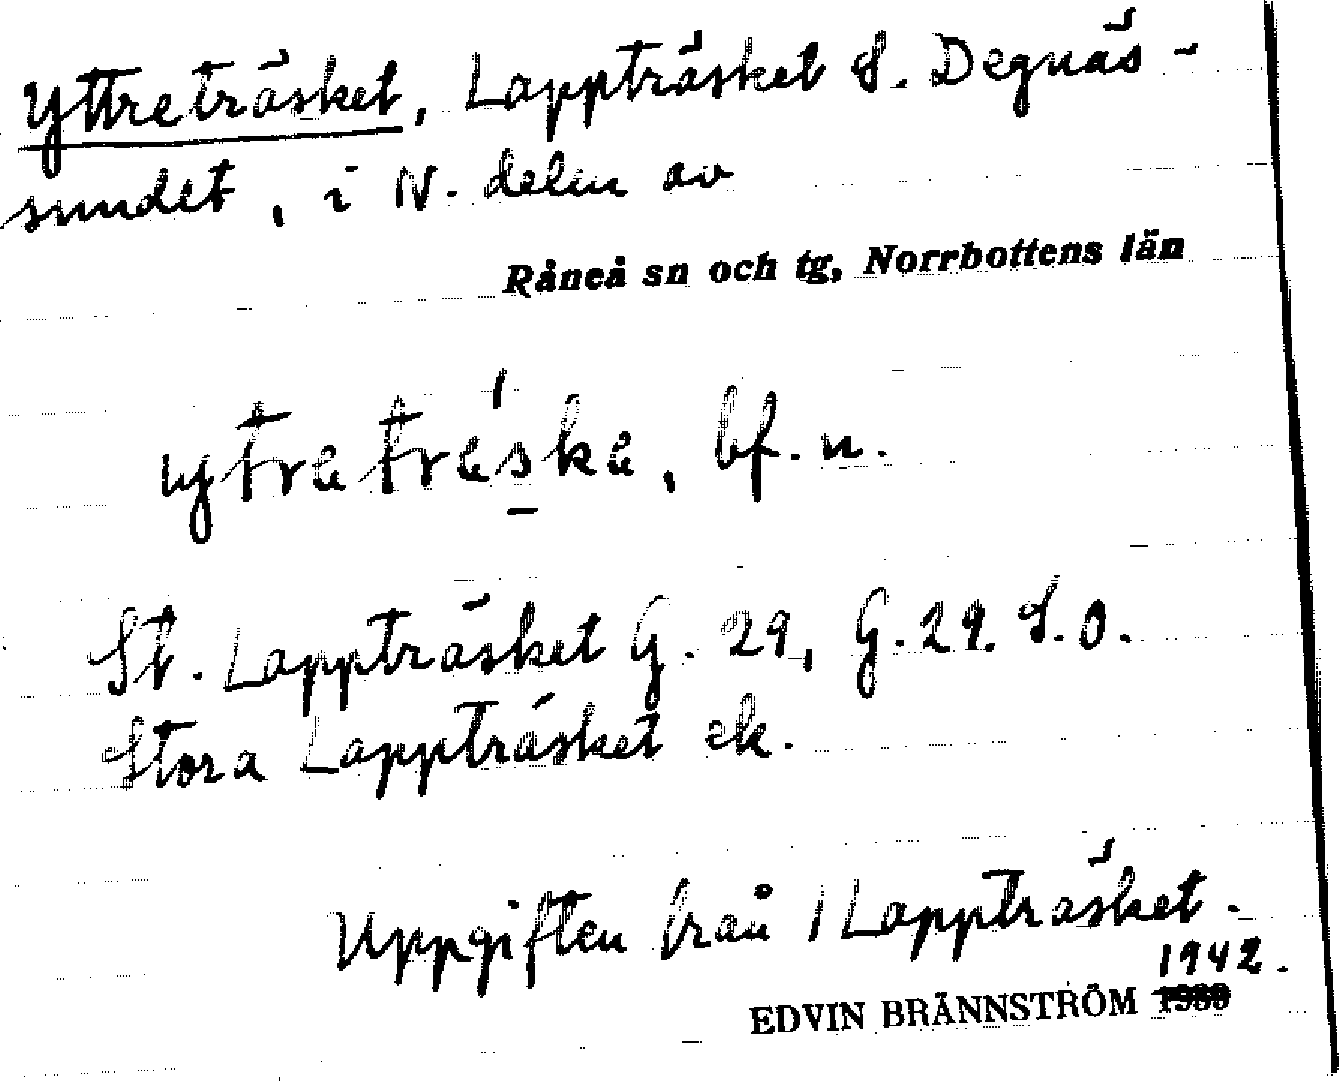 Yttreträsket, Lappträsket S. Degnäs-
sundet, i N. delen av
Råneå sn och tg, Norrbottens län
ytreträske, bf. n.
St. Lappträsket G. 29, G. 29. S.O.
Stora Lappträsket ek.
Uppgiften från Lappträsket.
1942.
EDVIN BRÄNNSTRÖM 1938